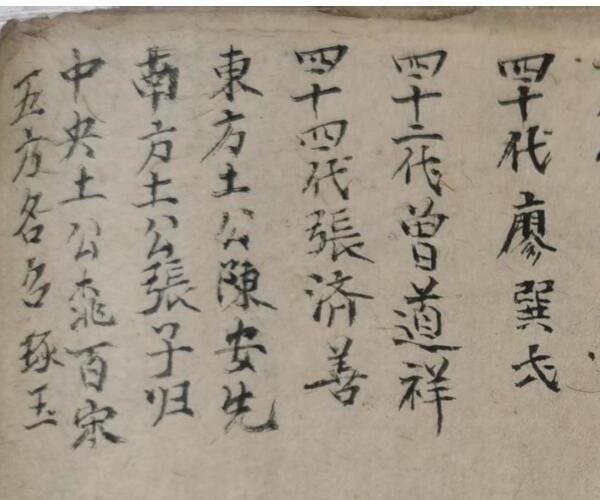 四十代廖巽
四十二代曾道祥
四十四代張济善
東方土公陳安先
南方土公張子归
中央土公 百
五方各 琢玉